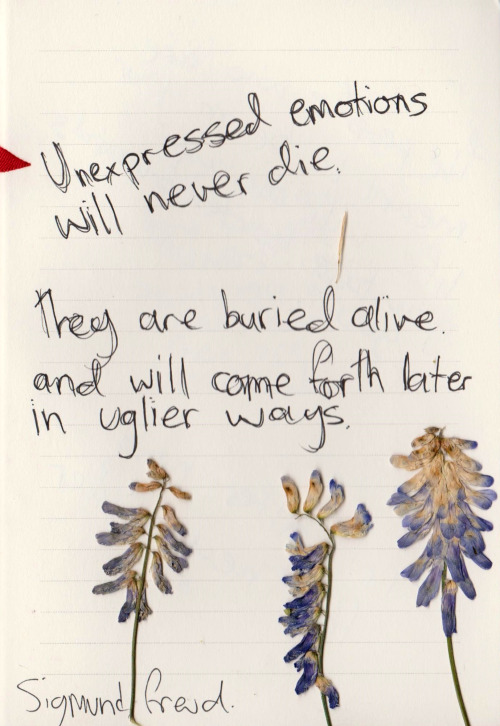 Unexpressed emotions
will never die.
They are buried alive.
and will come forth later
in uglier ways.
Sigmund Freud.